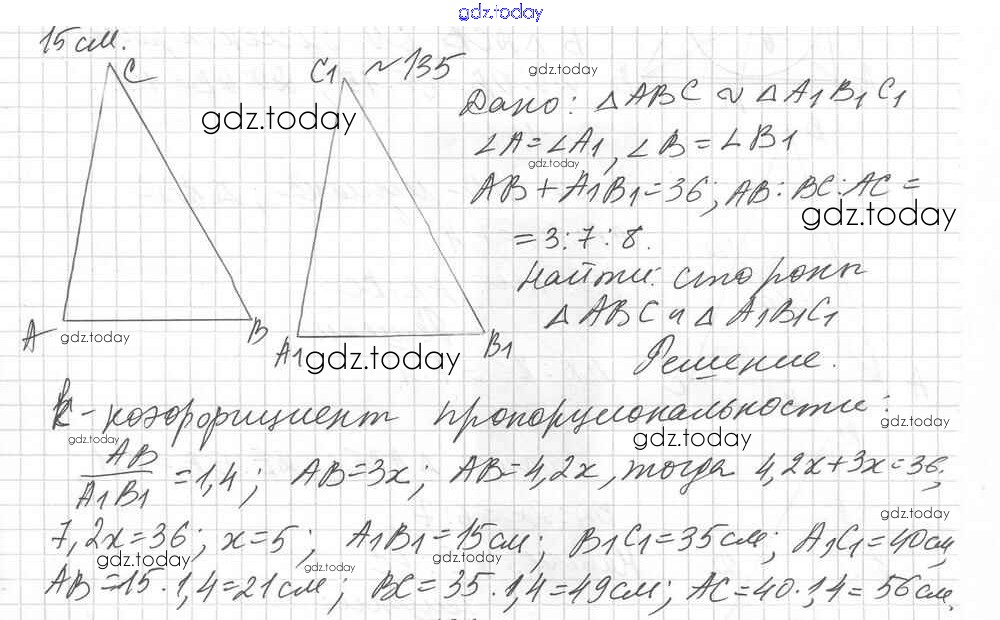 gdz.today
15 см.
C
C1 ~135 gdz.today
gdz.today
Дано: △ABC ∾ △A1B1C1
∠A=∠A1, ∠B=∠B1
gdz.today
AB+A1B1=36; AB:BC:AC=
gdz.today
=3:7:8.
Найти: стороны
△ABC и △A1B1C1
A gdz.today B
A1 gdz.today B1
Решение.
k-коэффициент пропорциональности:
gdz.today
gdz.today gdz.today
AB/A1B1=1,4; AB=3x; AB=4,2x, тогда 4,2x+3x=36;
gdz.today
7,2x=36; x=5; A1B1=15см; B1C1=35см; A1C1=40см,
gdz.today gdz.today gdz.today gdz.today
AB=15·1,4=21см; BC=35·1,4=49см; AC=40·1,4=56см.